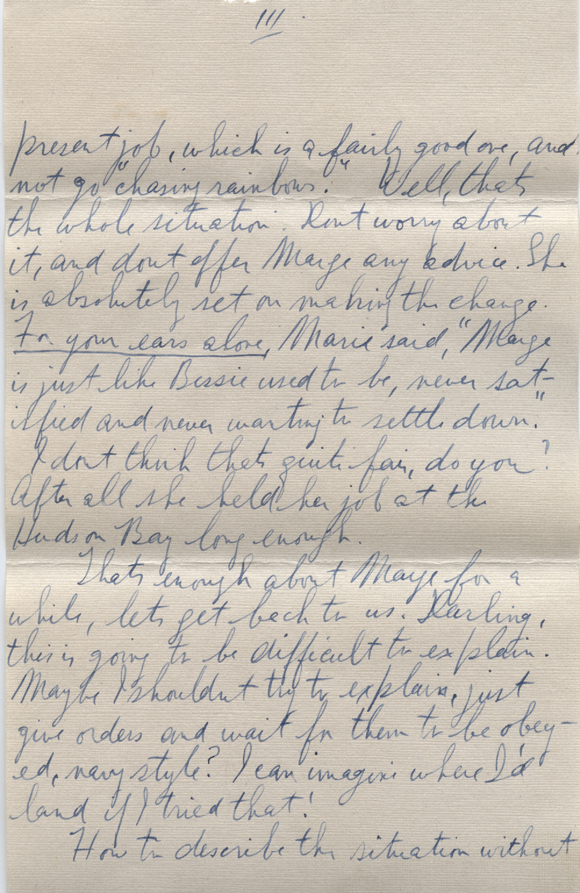 III
present job, which is a fairly good one, and
not go "chasing rainbows." Well, thats
the whole situation. Dont worry about
it, and dont offer Marge any advice. She
is absolutely set on making the change.
For your ears alone, Marie said, "Marge
is just like Bessie used to be, never sat-
isfied and never wanting to settle down."
I dont think thats quite fair, do you?
After all she held her job at the
Hudson Bay long enough.
Thats enough about Marge for a
while, lets get back to us. Darling,
this is going to be difficult to explain.
Maybe I shouldnt try to explain, just
give orders and wait for them to be obey-
ed, navy style? I can imagine where I'd
land if I tried that!
How to describe the situation without